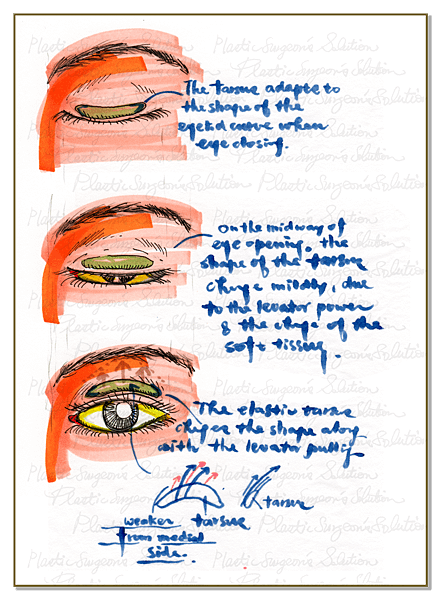 The tarsus adapts to
the shape of the
eyelid curve when
eye closing.
on the midway of
eye opening, the
shape of the tarsus
chnge mildly, due
to the levator power
& the chnge of the
soft tissue.
The elastic tarsus
chnges the shape along
with the levator pulling
tarsus
weaker tarsus
from medial
side.
Plastic Surgeon's Solution